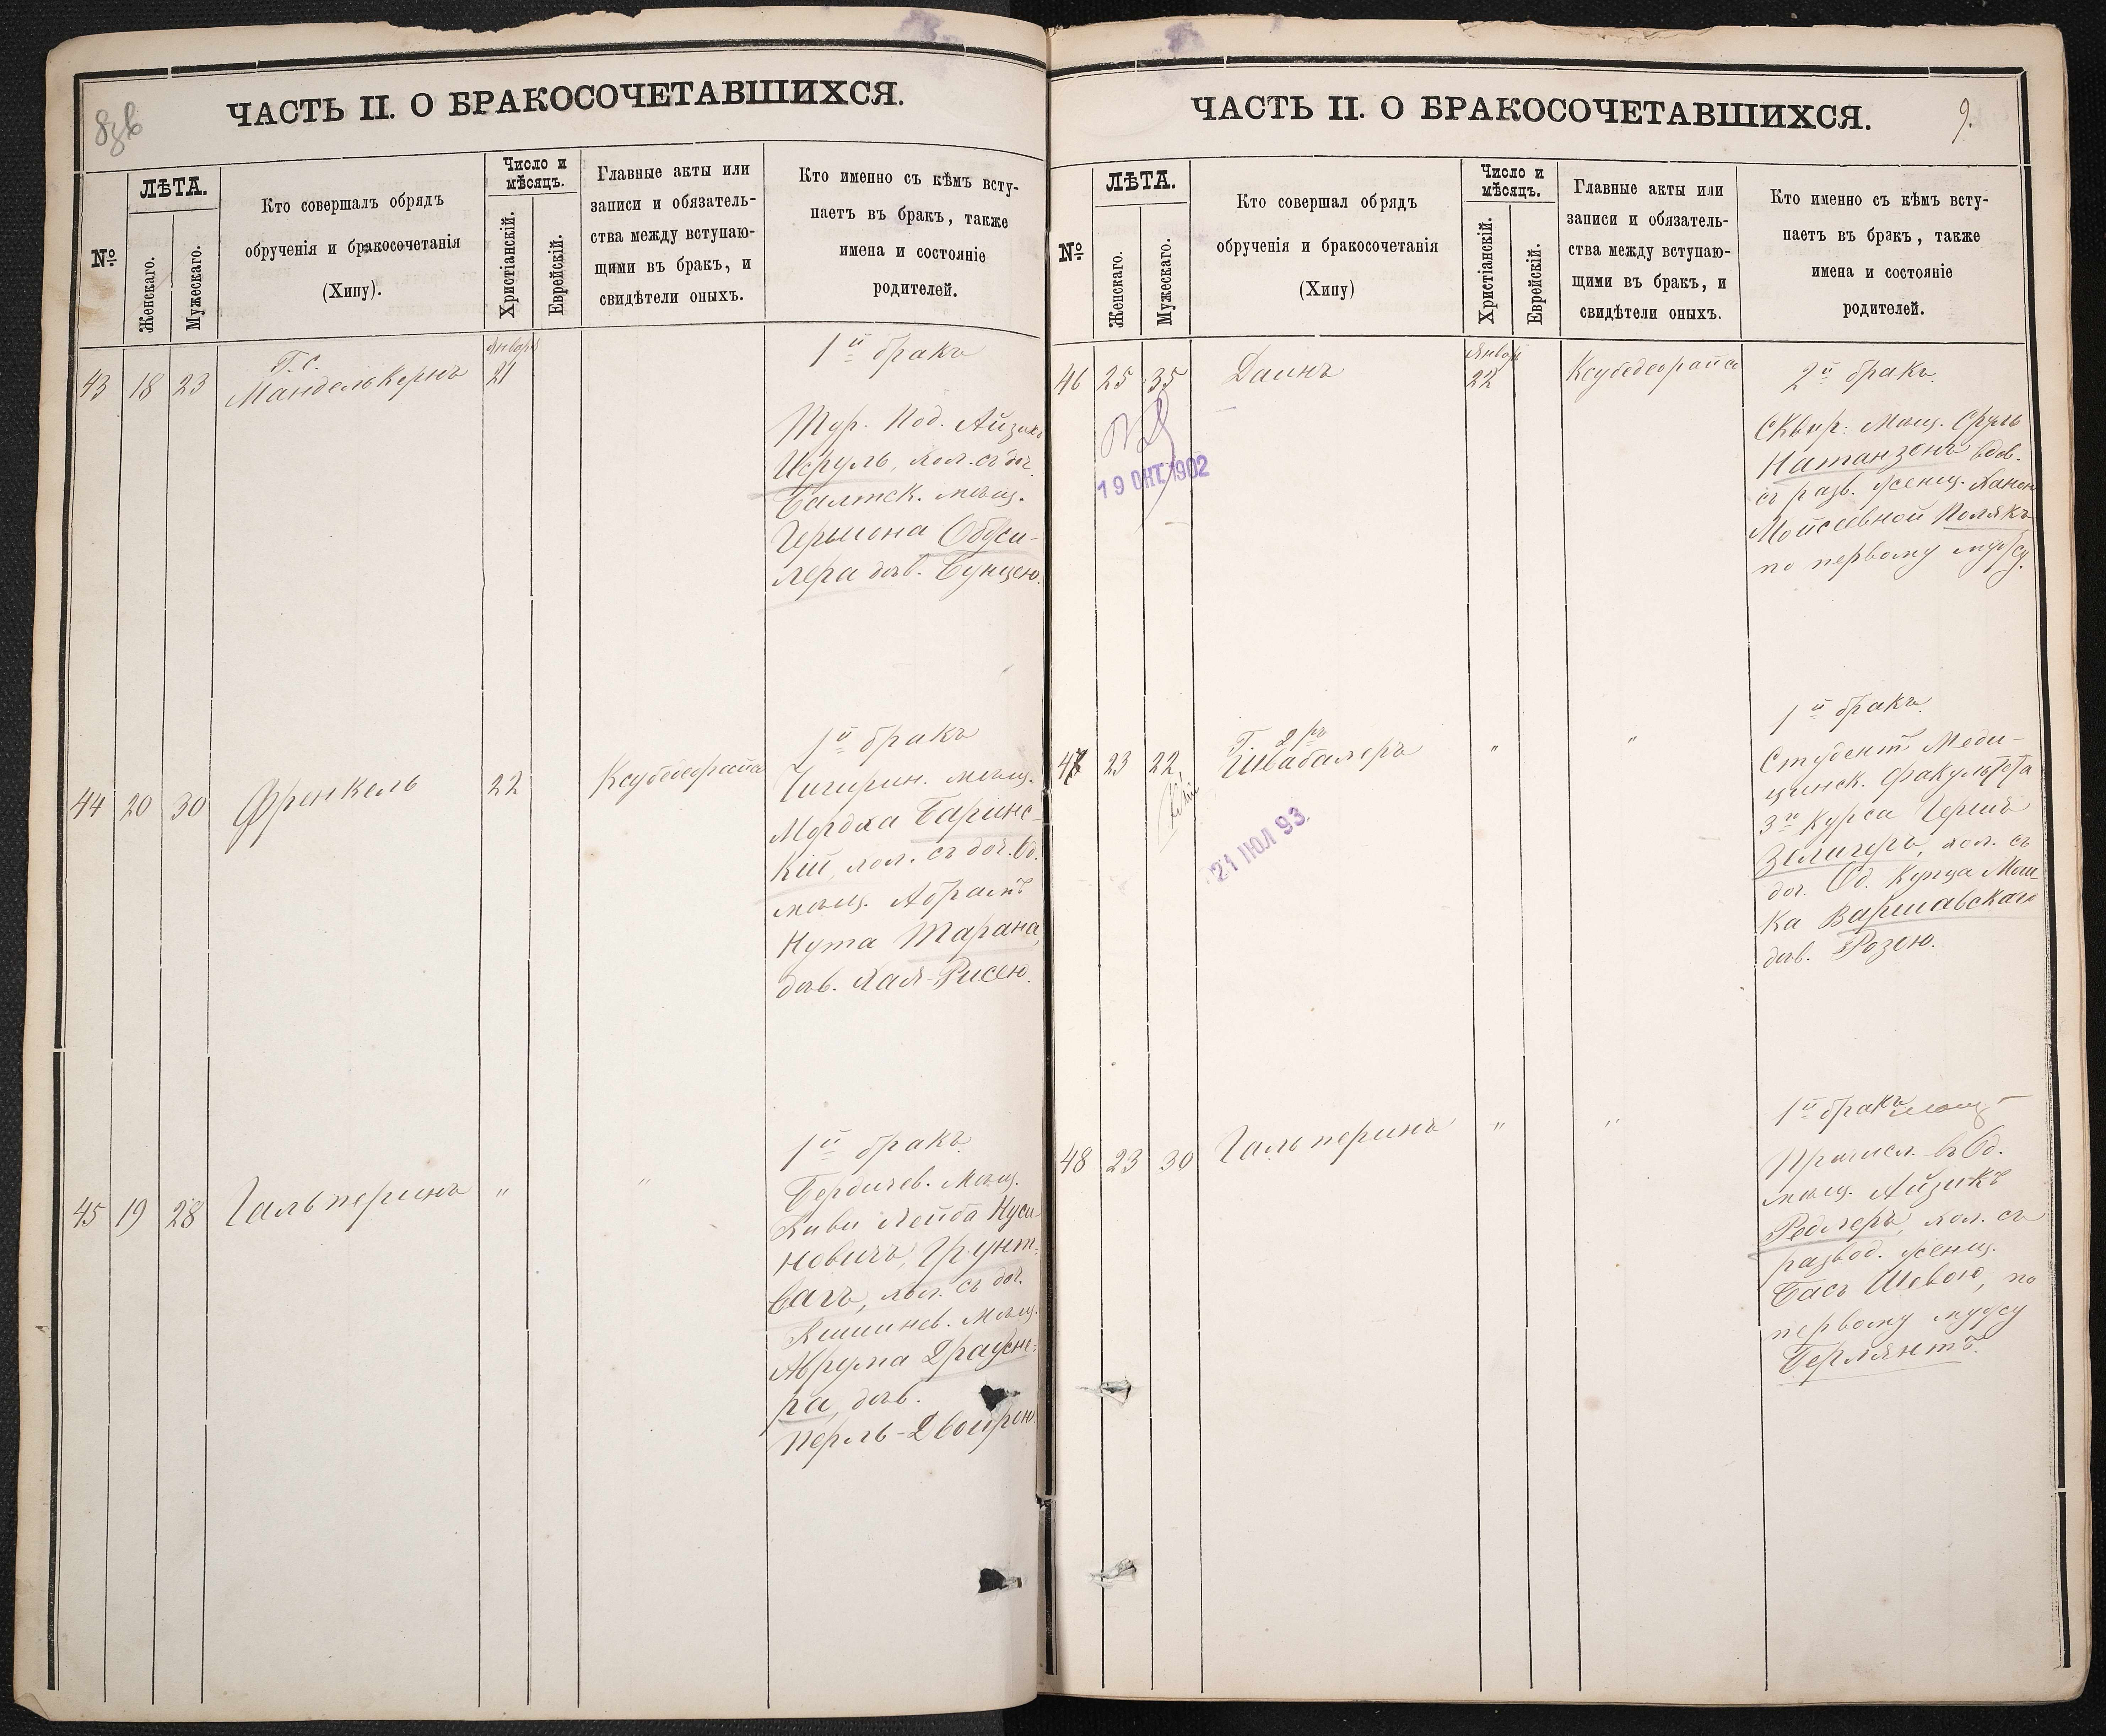 ЧАСТЬ II. О БРАКОСОЧЕТАВШИХСЯ.
№
ЛѢТА.
Женскаго.
Мужескаго.
Кто совершалъ обрядъ
обрученія и бракосочетанія
(Хипу).
Число и
мѣсяцъ.
Христіанскій.
Еврейскій.
Главные акты или
записи и обязатель-
ства между вступаю-
щими въ бракъ, и
свидѣтели оныхъ.
Кто именно съ кѣмъ всту-
паетъ въ бракъ, также
имена и состояніе
родителей.
43 18 23
Г. С.
Манделькернъ
Января
21
1й бракъ
Тур. Под. Айзикъ
Исруль, хол. съ доч.
Балтск. мѣщ.
Гершона
лера дѣв.
44 20 30 Френкель 22
1й бракъ
Чигирин. мѣщ.
Мордка Баринс-
кій, хол. съ доч. Од.
мѣщ. Абрамъ
Нута Тарана,
дѣв. Хая-Рисею.
45 19 28 Гальперинъ " "
1й бракъ
Бердичев. Мѣщ.
Акиви Лейба Нуси-
новичъ, Грунт-
вагъ, хол. съ доч.
Кишинев. Мѣщ.
Аврума
ра, дѣв.
Перль-Двойрою
ЧАСТЬ II. О БРАКОСОЧЕТАВШИХСЯ.
9.
№
ЛѢТА.
Женскаго.
Мужескаго.
Кто совершал обрядъ
обрученія и бракосочетанія
(Хипу)
Число и
мѣсяцъ.
Христіанскій.
Еврейскій.
Главные акты или
записи и обязатель-
ства между вступаю-
щими въ бракъ, и
свидѣтели оныхъ.
Кто именно съ кѣмъ всту-
паетъ въ бракъ, также
имена и состояніе
родителей.
46 25 35 Даинъ
Январ
22
2й бракъ.
19 ОКТ 1902
Сквир. Мѣщ. Сруль
Натанзонъ вдов.
съ разв. женщ. Ханою
Мойсеевной Полякъ
по первому мужу.
47 23 22
Г. Др
Швабахеръ
" "
21 ЮЛ 93.
1й бракъ.
Студентъ Меди-
цинск. факультета
3го Курса Гершъ
Зелигеръ, хол. съ
доч. Од. Купца Мош-
ка Варшавскаго
дѣв. Розою.
48 23 30 Гальперинъ " "
1й бракъ
Причисл. въ Од.
мѣщ. Айзикъ
Редлеръ, хол. съ
развод. женщ.
Бась Шевою, по
первому мужу
Берлянтъ.